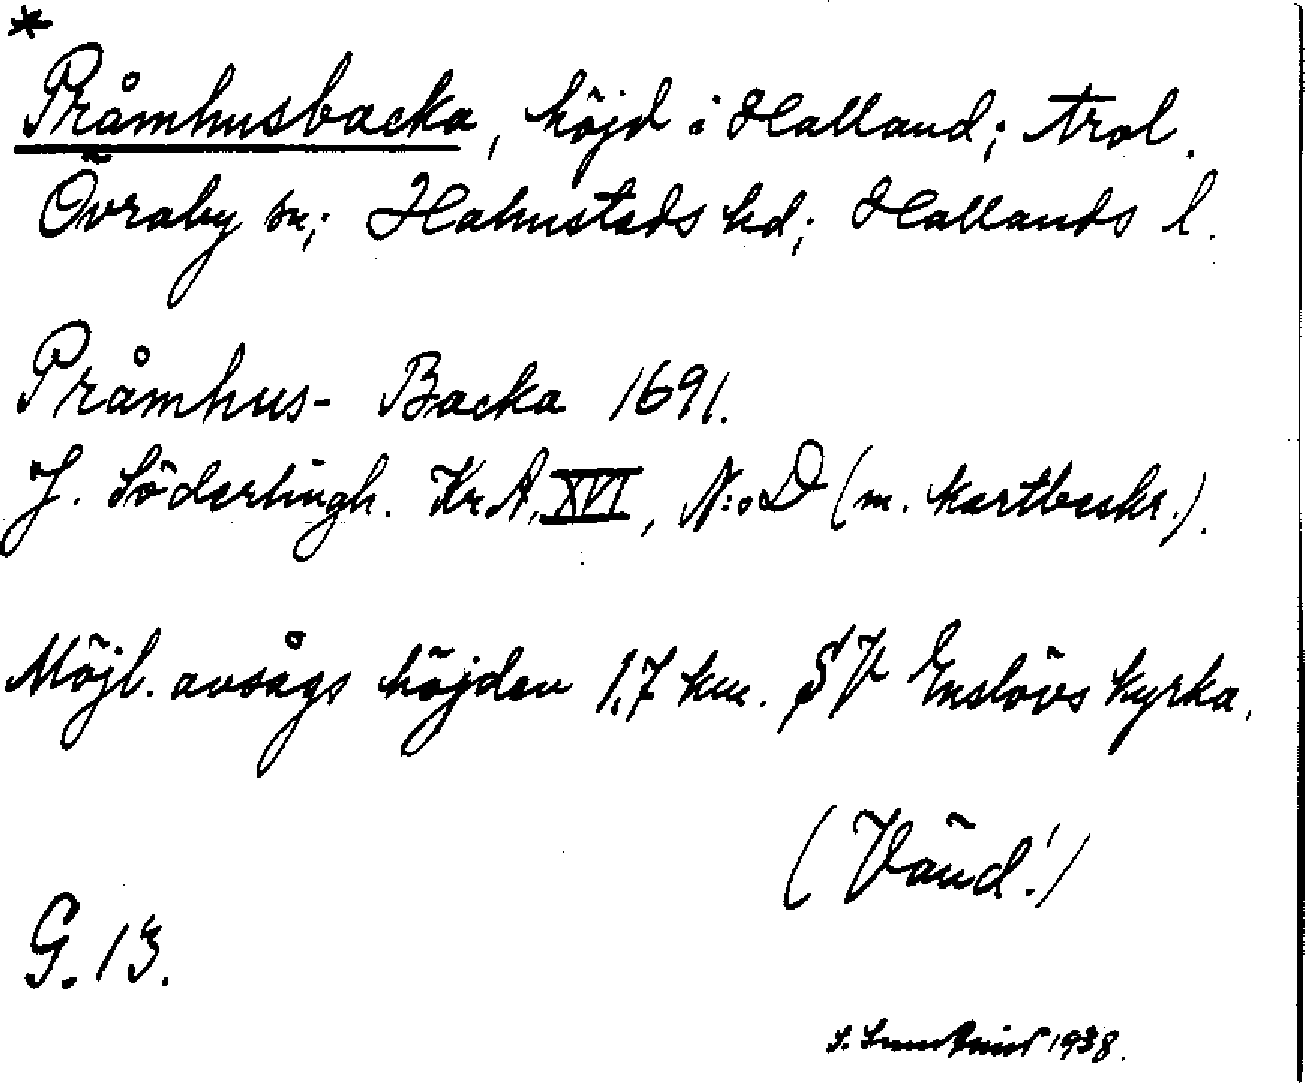 *
Pråmhusbacka, höjd i Halland; trol.
Övraby sn; Halmstads hd; Hallands l.
Pråmhus- Backa 1691.
J. Söderlingh. Kr.A. XVI, N:o D (m. kartbeskr.).
Möjl. avsågs höjden 1,7 km. SV Enslövs kyrka.
(Vänd!)
G. 13.
S. 1938.